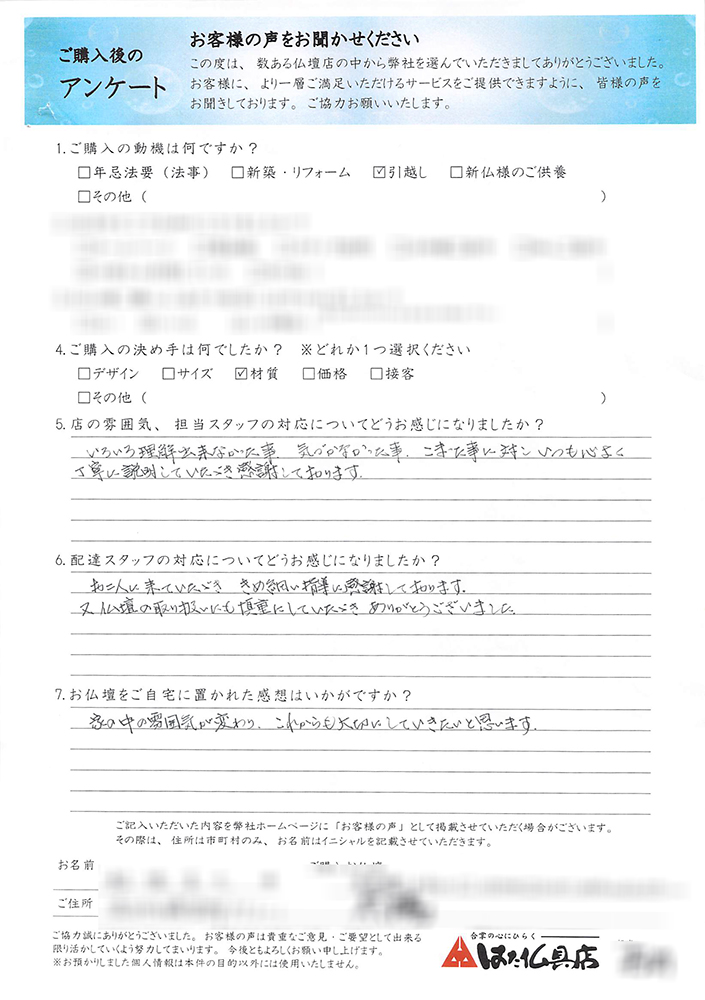 ご購入後の
アンケート
お客様の声をお聞かせください
この度は、数ある仏壇店の中から弊社を選んでいただきましてありがとうございました。
お客様に、より一層ご満足いただけるサービスをご提供できますように、皆様の声を
お聞きしております。ご協力お願いいたします。
1.ご購入の動機は何ですか？
□年忌法要（法事） □新築・リフォーム ☑引越し □新仏様のご供養
□その他（ ）
4.ご購入の決め手は何でしたか？ ※どれか1つ選択ください
□デザイン □サイズ ☑材質 □価格 □接客
□その他（ ）
5.店の雰囲気、担当スタッフの対応についてどうお感じになりましたか？
いろいろ理解出来なかった事、気づかなかった事、こまった事に対しいつも心よく
丁寧に説明していただき感謝しております。
6.配達スタッフの対応についてどうお感じになりましたか？
お二人に来ていただき きめ細い指導に感謝しております。
又仏壇の取り扱いにも慎重にしていただき ありがとうございました。
7.お仏壇をご自宅に置かれた感想はいかがですか？
家の中の雰囲気が変わり、これからも大切にしていきたいと思います。
ご記入いただいた内容を弊社ホームページに「お客様の声」として掲載させていただく場合がございます。
その際は、住所は市町村のみ、お名前はイニシャルを記載させていただきます。
お名前
ご住所
ご協力誠にありがとうございました。お客様の声は貴重なご意見・ご要望として出来る
限り活かしていくよう努力してまいります。今後ともよろしくお願い申し上げます。
※お預かりしました個人情報は本件の目的以外には使用いたしません。
合掌の心にひらく
はた仏具店